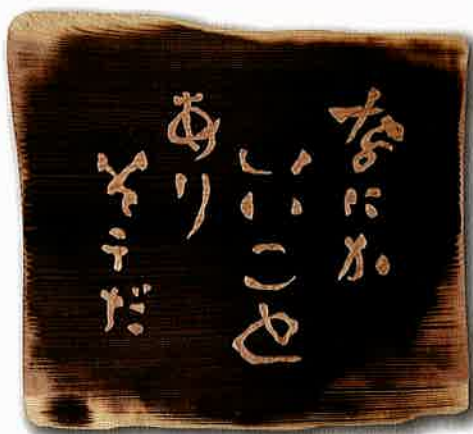 なにか
いいこと
あり
そうだ